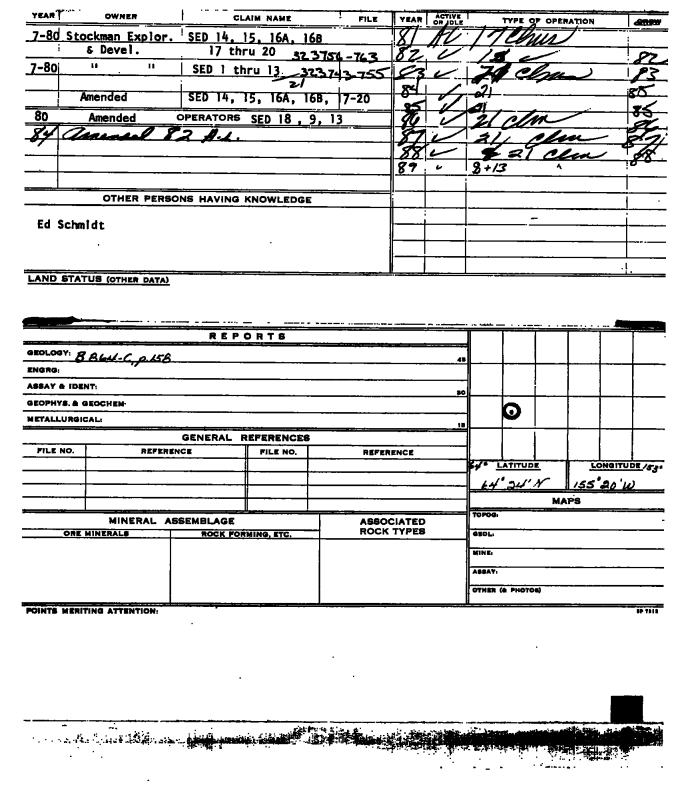 YEAR OWNER CLAIM NAME FILE
7-80 Stockman Explor. SED 14, 15, 16A, 16B
& Devel. 17 thru 20 323756-763
7-80 " " SED 1 thru 13 323743-755
21
Amended SED 14, 15, 16A, 16B, 17-20
80 Amended OPERATORS SED 18, 9, 13
84 82
YEAR ACTIVE OR IDLE TYPE OF OPERATION
81 17 Clms
82 ✓ 82
83 ✓ Clms 83
84 21 85
85 21 85
86 ✓ 21 Clm 86
87 ✓ 21 Clm 87
88 ✓ 21 Clm 88
89 " 8+13 "
OTHER PERSONS HAVING KNOWLEDGE
Ed Schmidt
LAND STATUS (OTHER DATA)
REPORTS
GEOLOGY: p.15B 45
ENGRG:
ASSAY & IDENT: 30
GEOPHYS. & GEOCHEM:
METALLURGICAL: 15
GENERAL REFERENCES
FILE NO. REFERENCE FILE NO. REFERENCE
64° LATITUDE LONGITUDE 153°
64° 24' N 155° 20' W
MAPS
TOPOG:
GEOL:
MINE:
ASSAY:
OTHER (& PHOTOS)
MINERAL ASSEMBLAGE ASSOCIATED ROCK TYPES
ORE MINERALS ROCK FORMING, ETC.
POINTS MERITING ATTENTION: